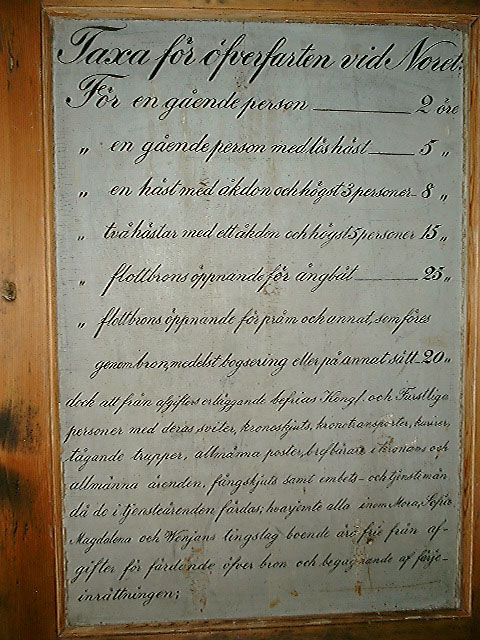 Taxa för öfverfarten vid Noret;
För en gående person 2 öre
„ en gående person med lös häst 5 „
„ en häst med åkdon och högst 3 personer 8 „
„ två hästar med ett åkdon och högst 5 personer 15 „
„ flottbrons öppnande för ångbåt 25 „
„ flottbrons öppnande för pråm och annat, som föres
genom bron, medelst bogsering eller på annat sätt 20 „
dock att från afgifters erläggande befrias Kongl. och Furstliga
personer med deras sviter, kronoskjuts, kronotransporter, kurirer,
tågande trupper, allmänna poster, brefbärare i kronans och
allmänna ärenden, fångskjuts samt embets- och tjenstemän
då de i tjensteärenden färdas; hvarjemte alla inom Mora, Sofia
Magdalena och Wenjans tingslag boende äro frie från af-
gifter för färdande öfver bron och begagnande af färje-
inrättningen;